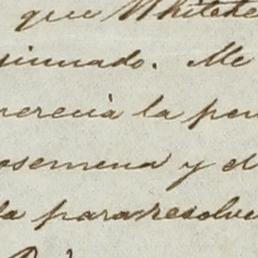 que Whitehe
sinuado. Me
merecia la pen
osemena y el
la para resolve